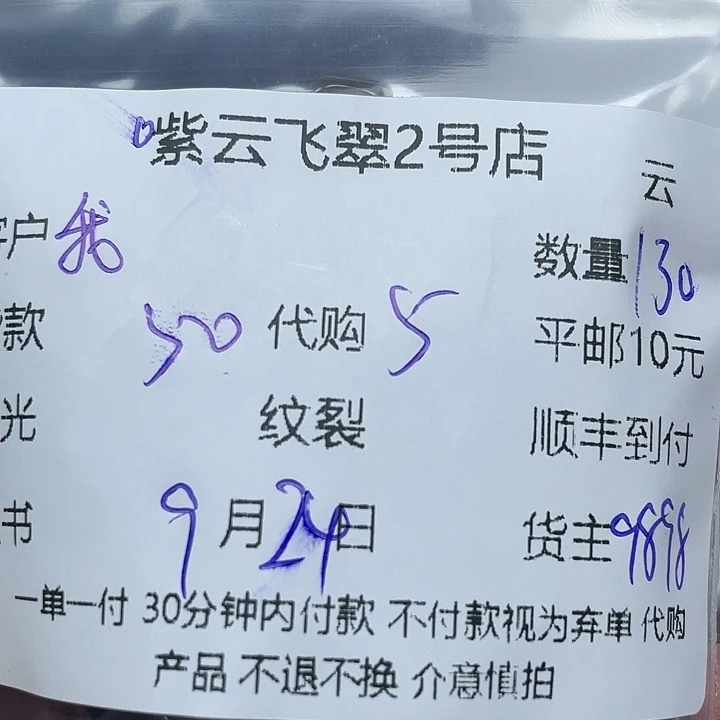 紫云飞翠2号店
云
客户 我 数量 130
款 50 代购 5 平邮10元
光 纹裂 顺丰到付
书 9月24日 货主 9898
一单一付 30分钟内付款 不付款视为弃单 代购
产品 不退不换 介意慎拍